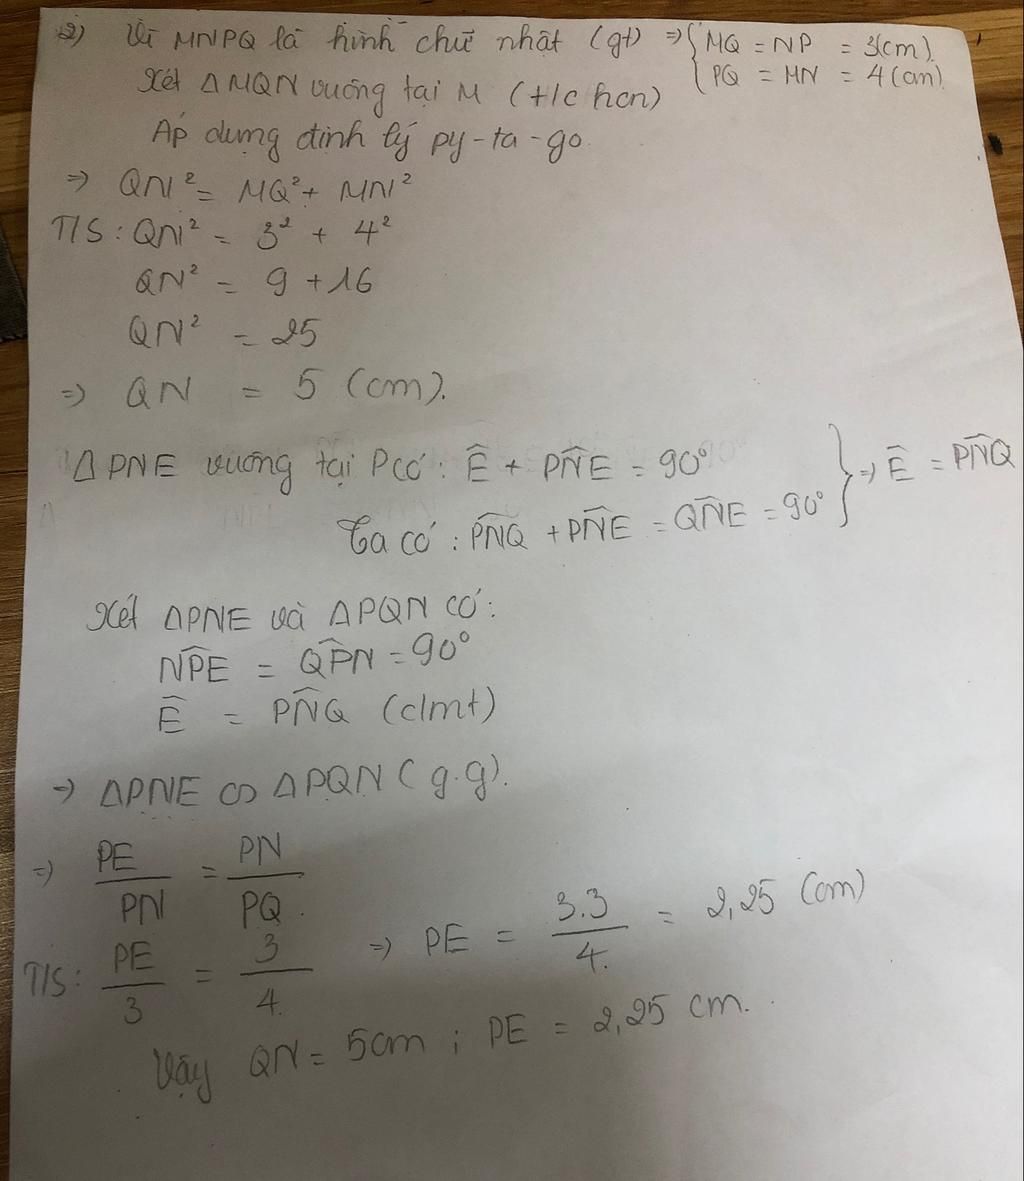 2) Vì MNPQ là hình chữ nhật (gt) => { MQ = NP = 3(cm)
PQ = MN = 4 (cm)
Xét ΔMQN vuông tại M (t/c hcn)
Áp dụng định lý py-ta-go.
=> QN² = MQ² + MN²
T/S : QN² = 3² + 4²
QN² = 9 + 16
QN² = 25
=> QN = 5 (cm).
ΔPNE vuông tại P có : Ê + PN̂E = 90° } => Ê = PN̂Q
Ta có : PN̂Q + PN̂E = QN̂E = 90°
Xét ΔPNE và ΔPQN có :
NP̂E = QP̂N = 90°
Ê = PN̂Q (c/mt)
=> ΔPNE ∽ ΔPQN (g.g).
=> PE/PN = PN/PQ
T/S: PE/3 = 3/4. => PE = 3.3/4. = 2,25 (cm)
Vậy QN = 5cm ; PE = 2,25 cm.